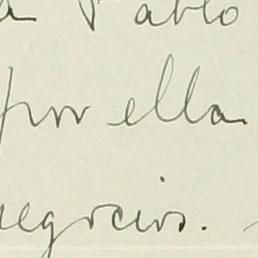 a Pablo
por ella
negocios.